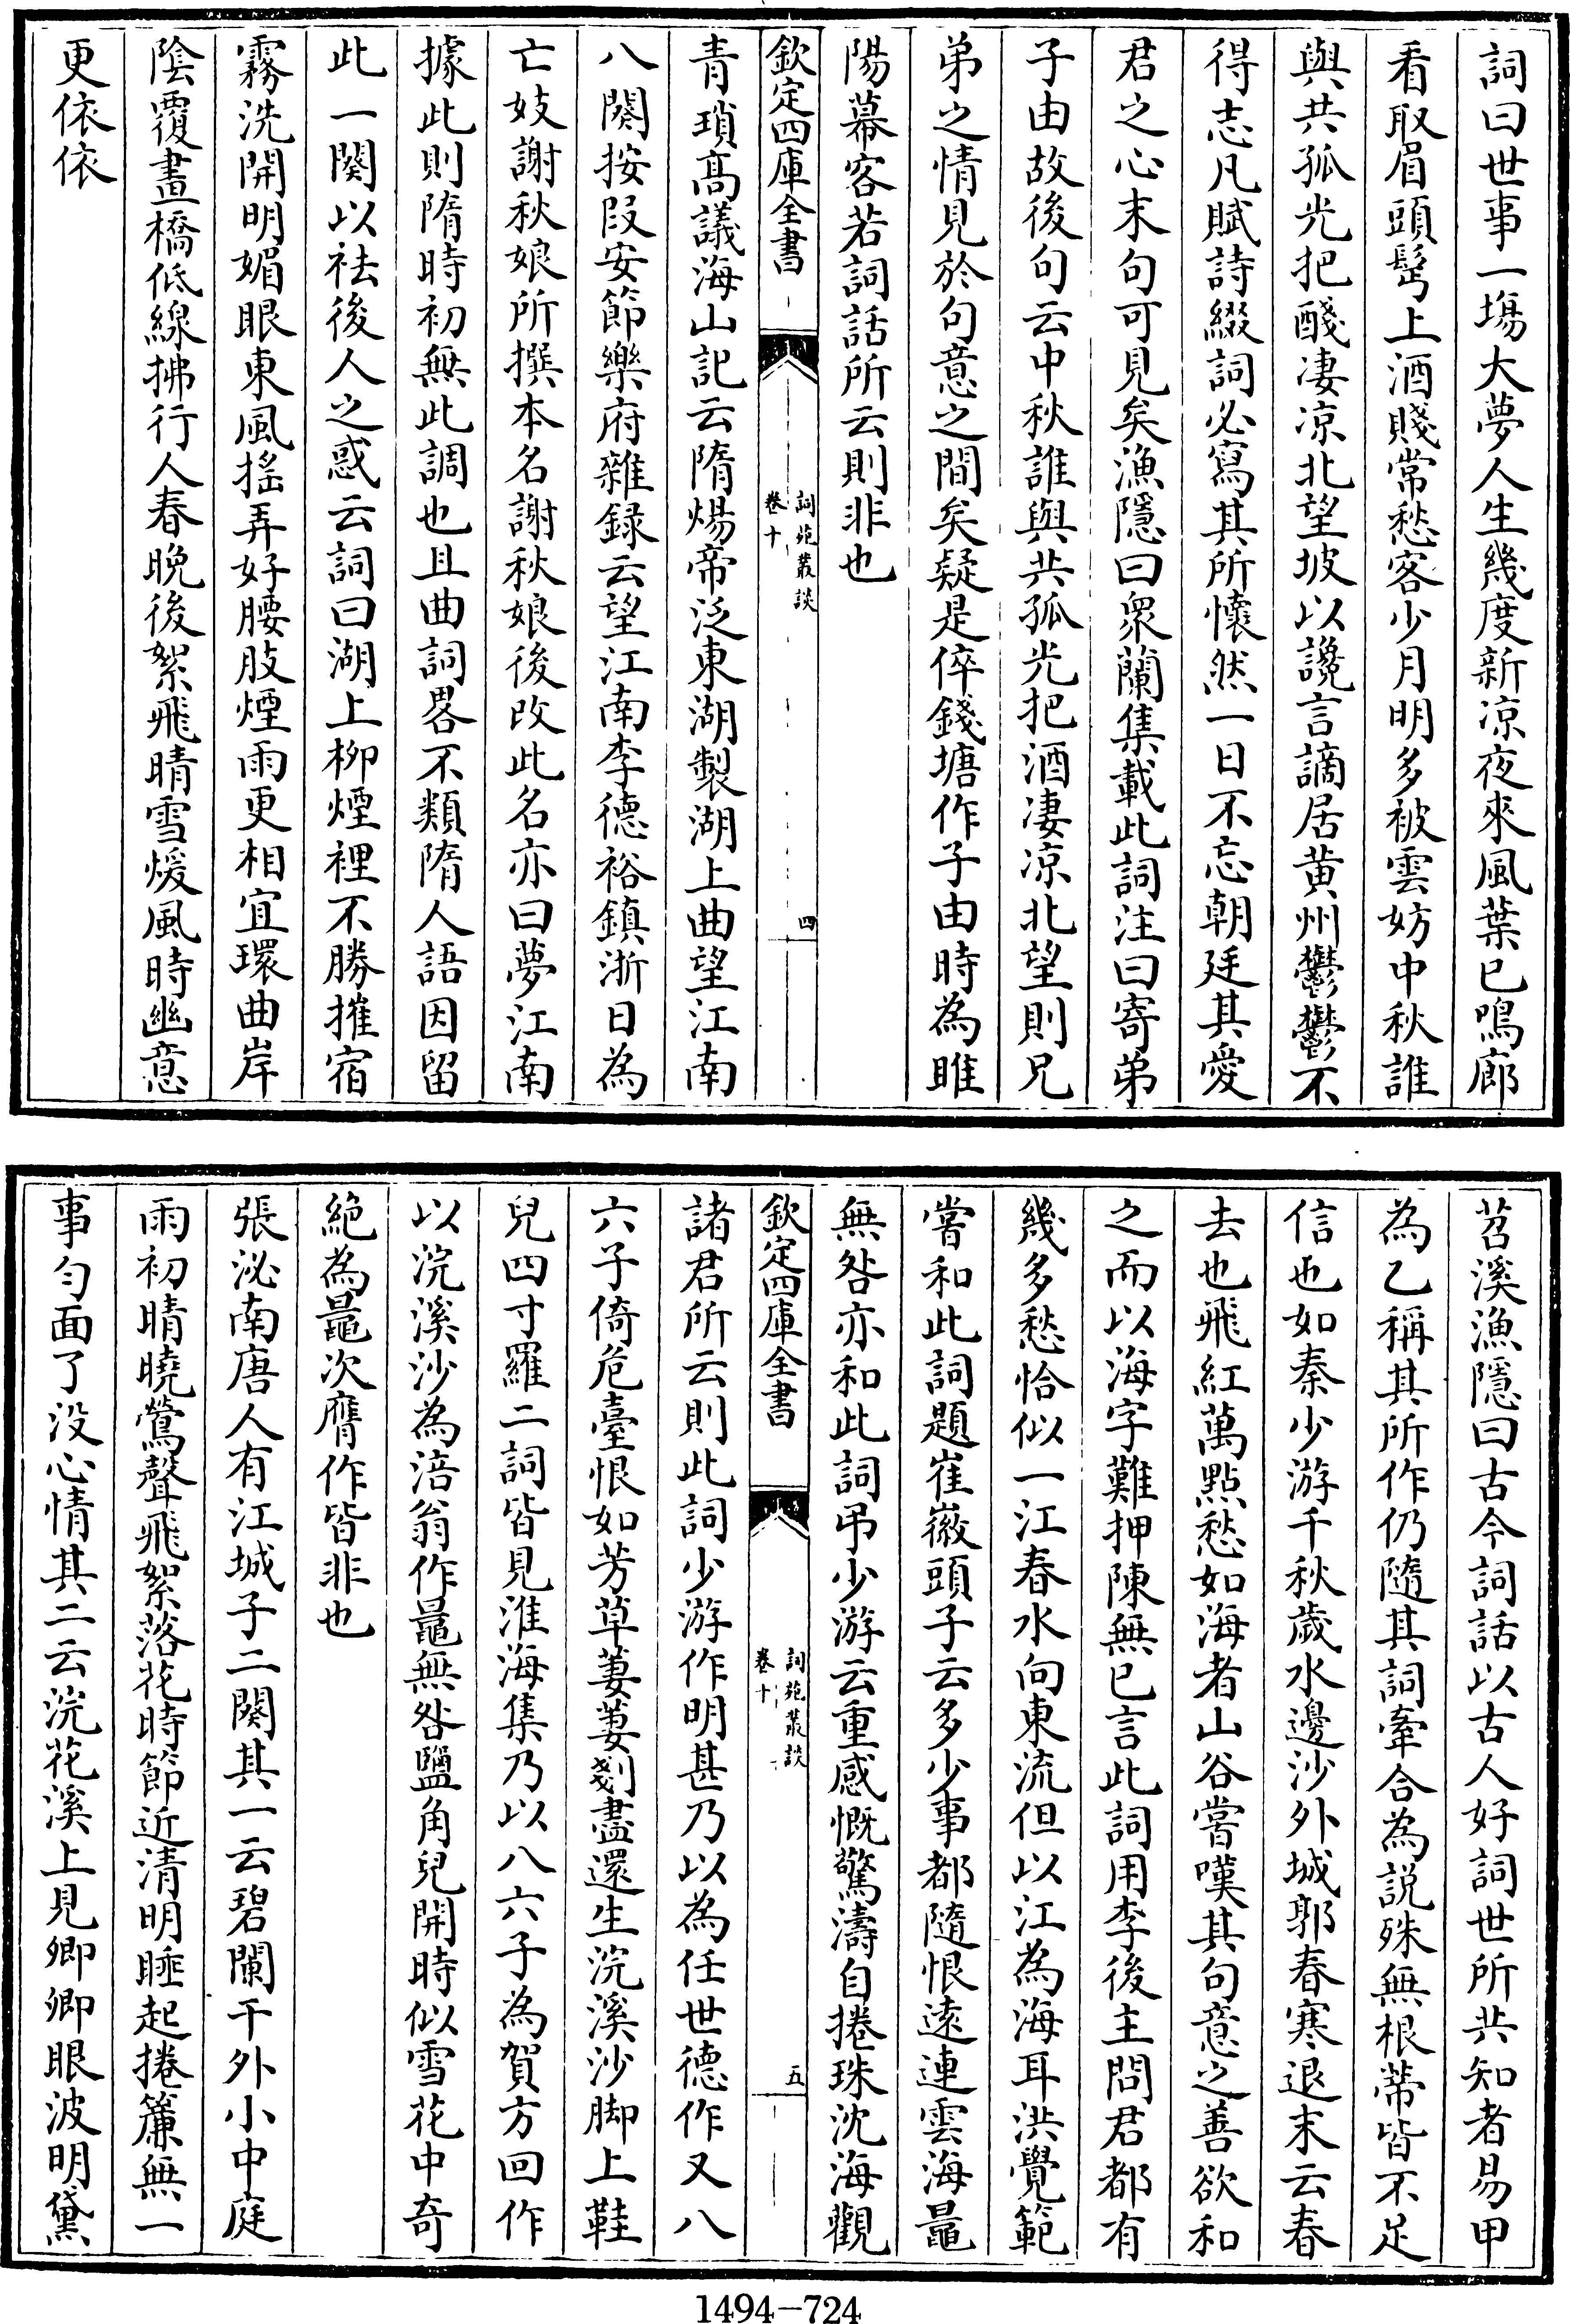 詞曰世事一塲大夢人生幾度新凉夜來風葉已鳴廊
看取眉頭髩上酒賤常愁客少月明多被雲妨中秋誰
與共孤光把醆凄凉北望坡以讒言謫居黄州鬱鬱不
得志凡賦詩綴詞必寫其所懷然一日不忘朝廷其愛
君之心末句可見矣漁隱曰衆蘭集載此詞注曰寄弟
子由故後句云中秋誰與共孤光把酒凄凉北望則兄
弟之情見於句意之間矣疑是倅錢塘作子由時為睢
陽幕客若詞話所云則非也
欽定四庫全書
詞苑叢談
卷十
四
青瑣髙議海山記云隋煬帝泛東湖製湖上曲望江南
八闋按段安節樂府雜録云望江南李德裕鎮浙日為
亡妓謝秋娘所撰本名謝秋娘後改此名亦曰夢江南
據此則隋時初無此調也且曲詞畧不類隋人語因留
此一闋以祛後人之惑云詞曰湖上栁煙裡不勝摧宿
霧洗開明媚眼東風揺弄好腰肢煙雨更相宜環曲岸
陰覆畫橋低線拂行人春晚後絮飛晴雪煖風時幽意
更依依
苕溪漁隱曰古今詞話以古人好詞世所共知者易甲
為乙稱其所作仍隨其詞牽合為説殊無根蒂皆不足
信也如秦少游千秋歲水邊沙外城郭春寒退末云春
去也飛紅萬點愁如海者山谷嘗嘆其句意之善欲和
之而以海字難押陳無已言此詞用李後主問君都有
幾多愁恰似一江春水向東流但以江為海耳洪覺範
嘗和此詞題崔徽頭子云多少事都隨恨逺連雲海鼂
無咎亦和此詞弔少游云重感慨驚濤自捲珠沈海觀
欽定四庫全書
詞苑叢談
卷十
五
諸君所云則此詞少游作明甚乃以為任世德作又八
六子倚危亭恨如芳草萋萋剗盡還生浣溪沙脚上鞋
兒四寸羅二詞皆見淮海集乃以八六子為賀方回作
以浣溪沙為涪翁作鼂無咎鹽角兒開時似雪花中奇
絶為鼂次膺作皆非也
張泌南唐人有江城子二闋其一云碧闌干外小中庭
雨初晴曉鶯聲飛絮落花時節近清明睡起捲簾無一
事勻面了没心情其二云浣花溪上見卿卿眼波明黛
1494-724